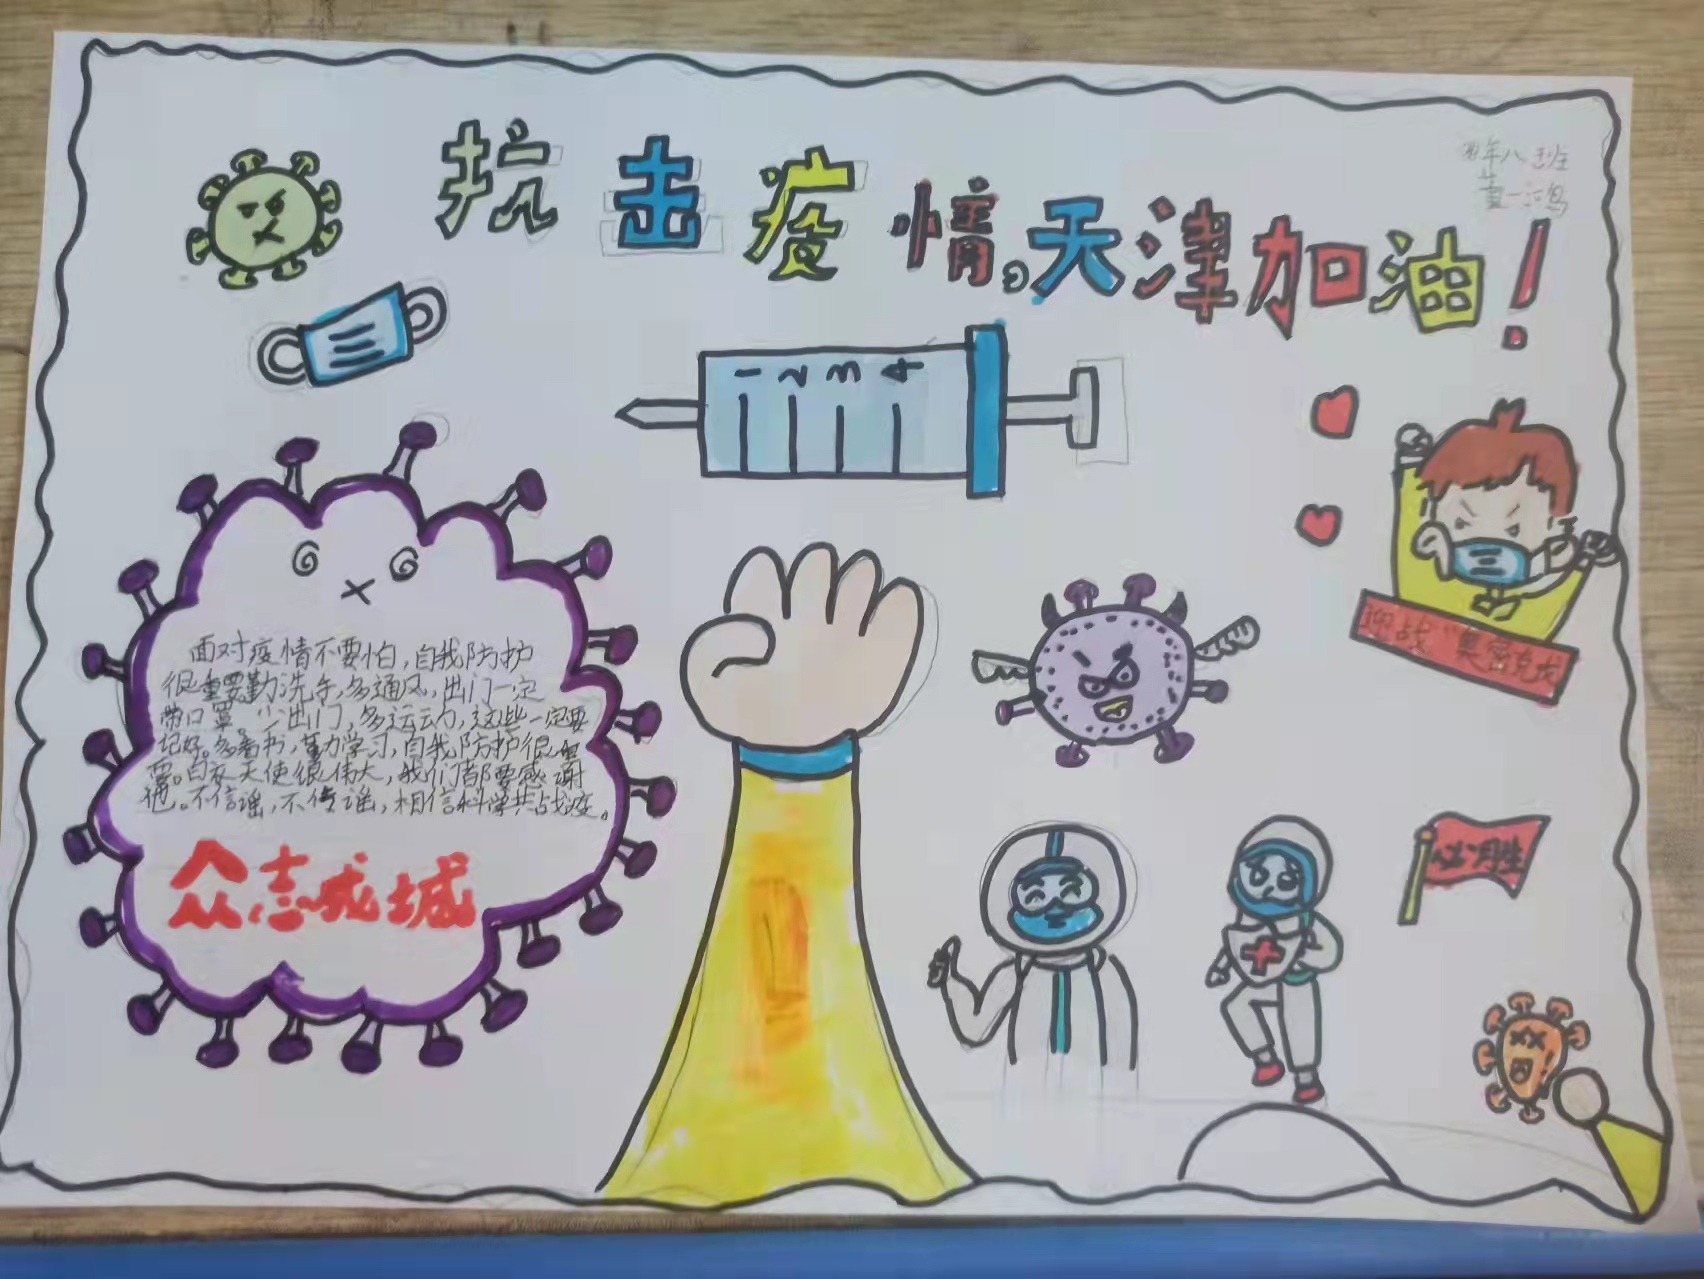 抗击疫情。天津加油!
四年八班
董一鸿
1 2 3 4
面对疫情不要怕,自我防护
很重要勤洗手,多通风,出门一定
带口罩。少出门,多运动,这些一定要
记好。多看书,勤学习,自我防护很重
要。白衣天使很伟大,我们都要感谢
他。不信谣,不传谣,相信科学共战疫。
众志成城
迎战"奥密克戎
必胜